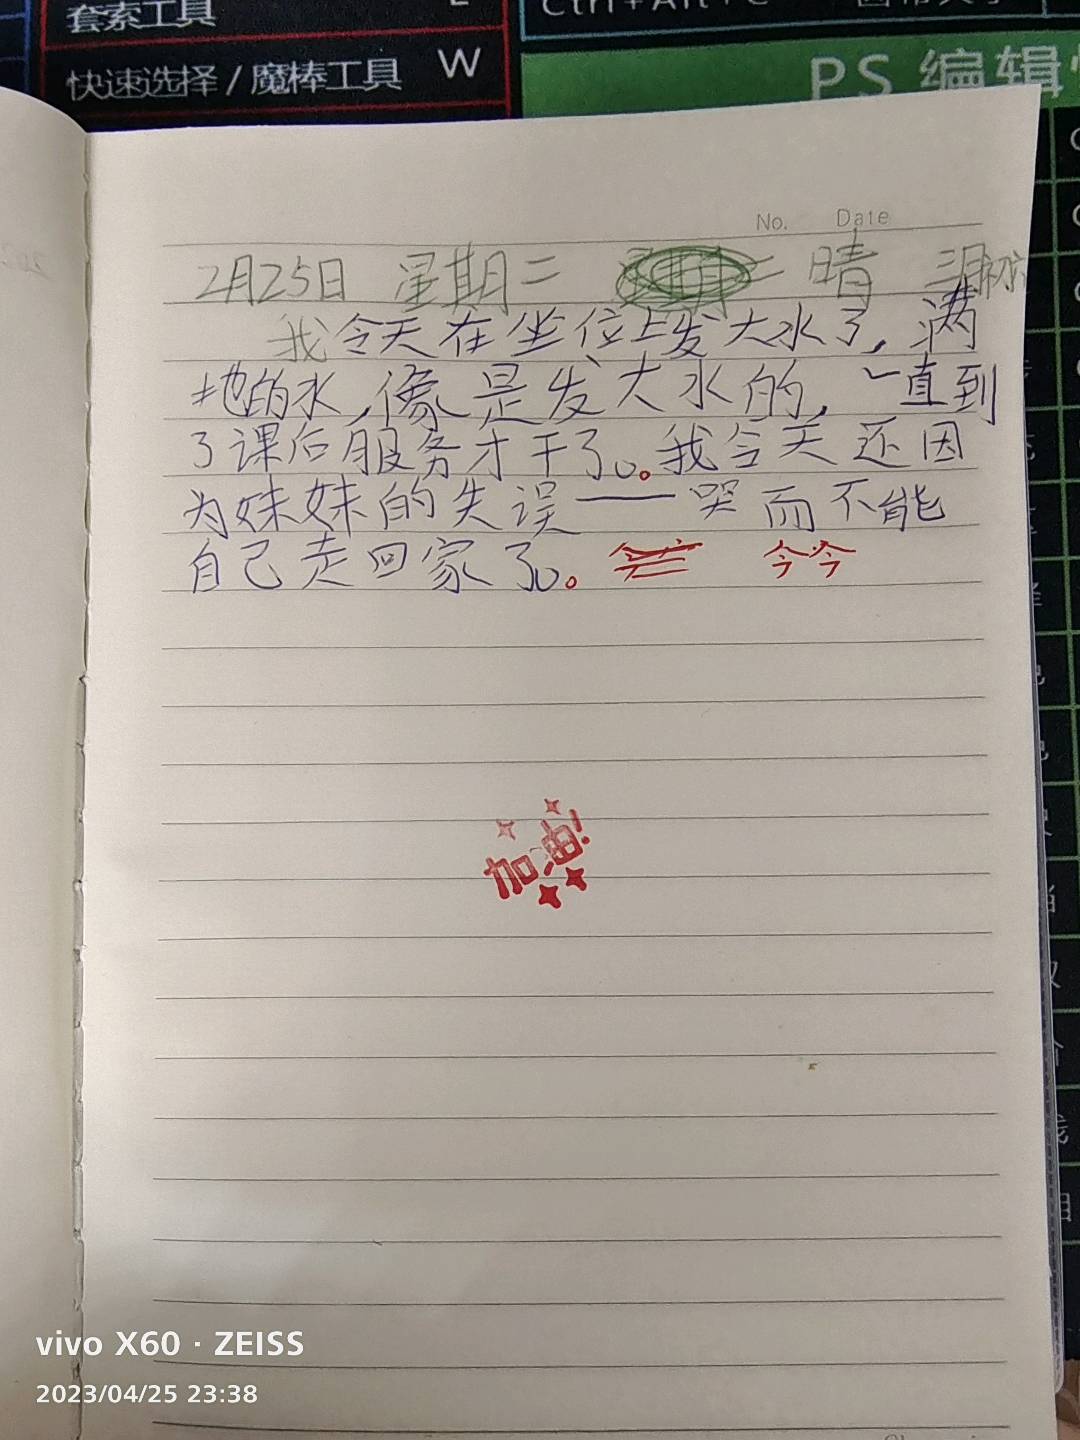 套索工具 L
快速选择 / 魔棒工具 W
PS 编辑
No. Date
2月25日 星期二 晴
我今天在坐位上发大水了，满
地的水，像是发大水的，一直到
了课后服务才干了。我今天还因
为妹妹的失误——哭而不能
自己走回家了。 今今
vivo X60 · ZEISS
2023/04/25 23:38